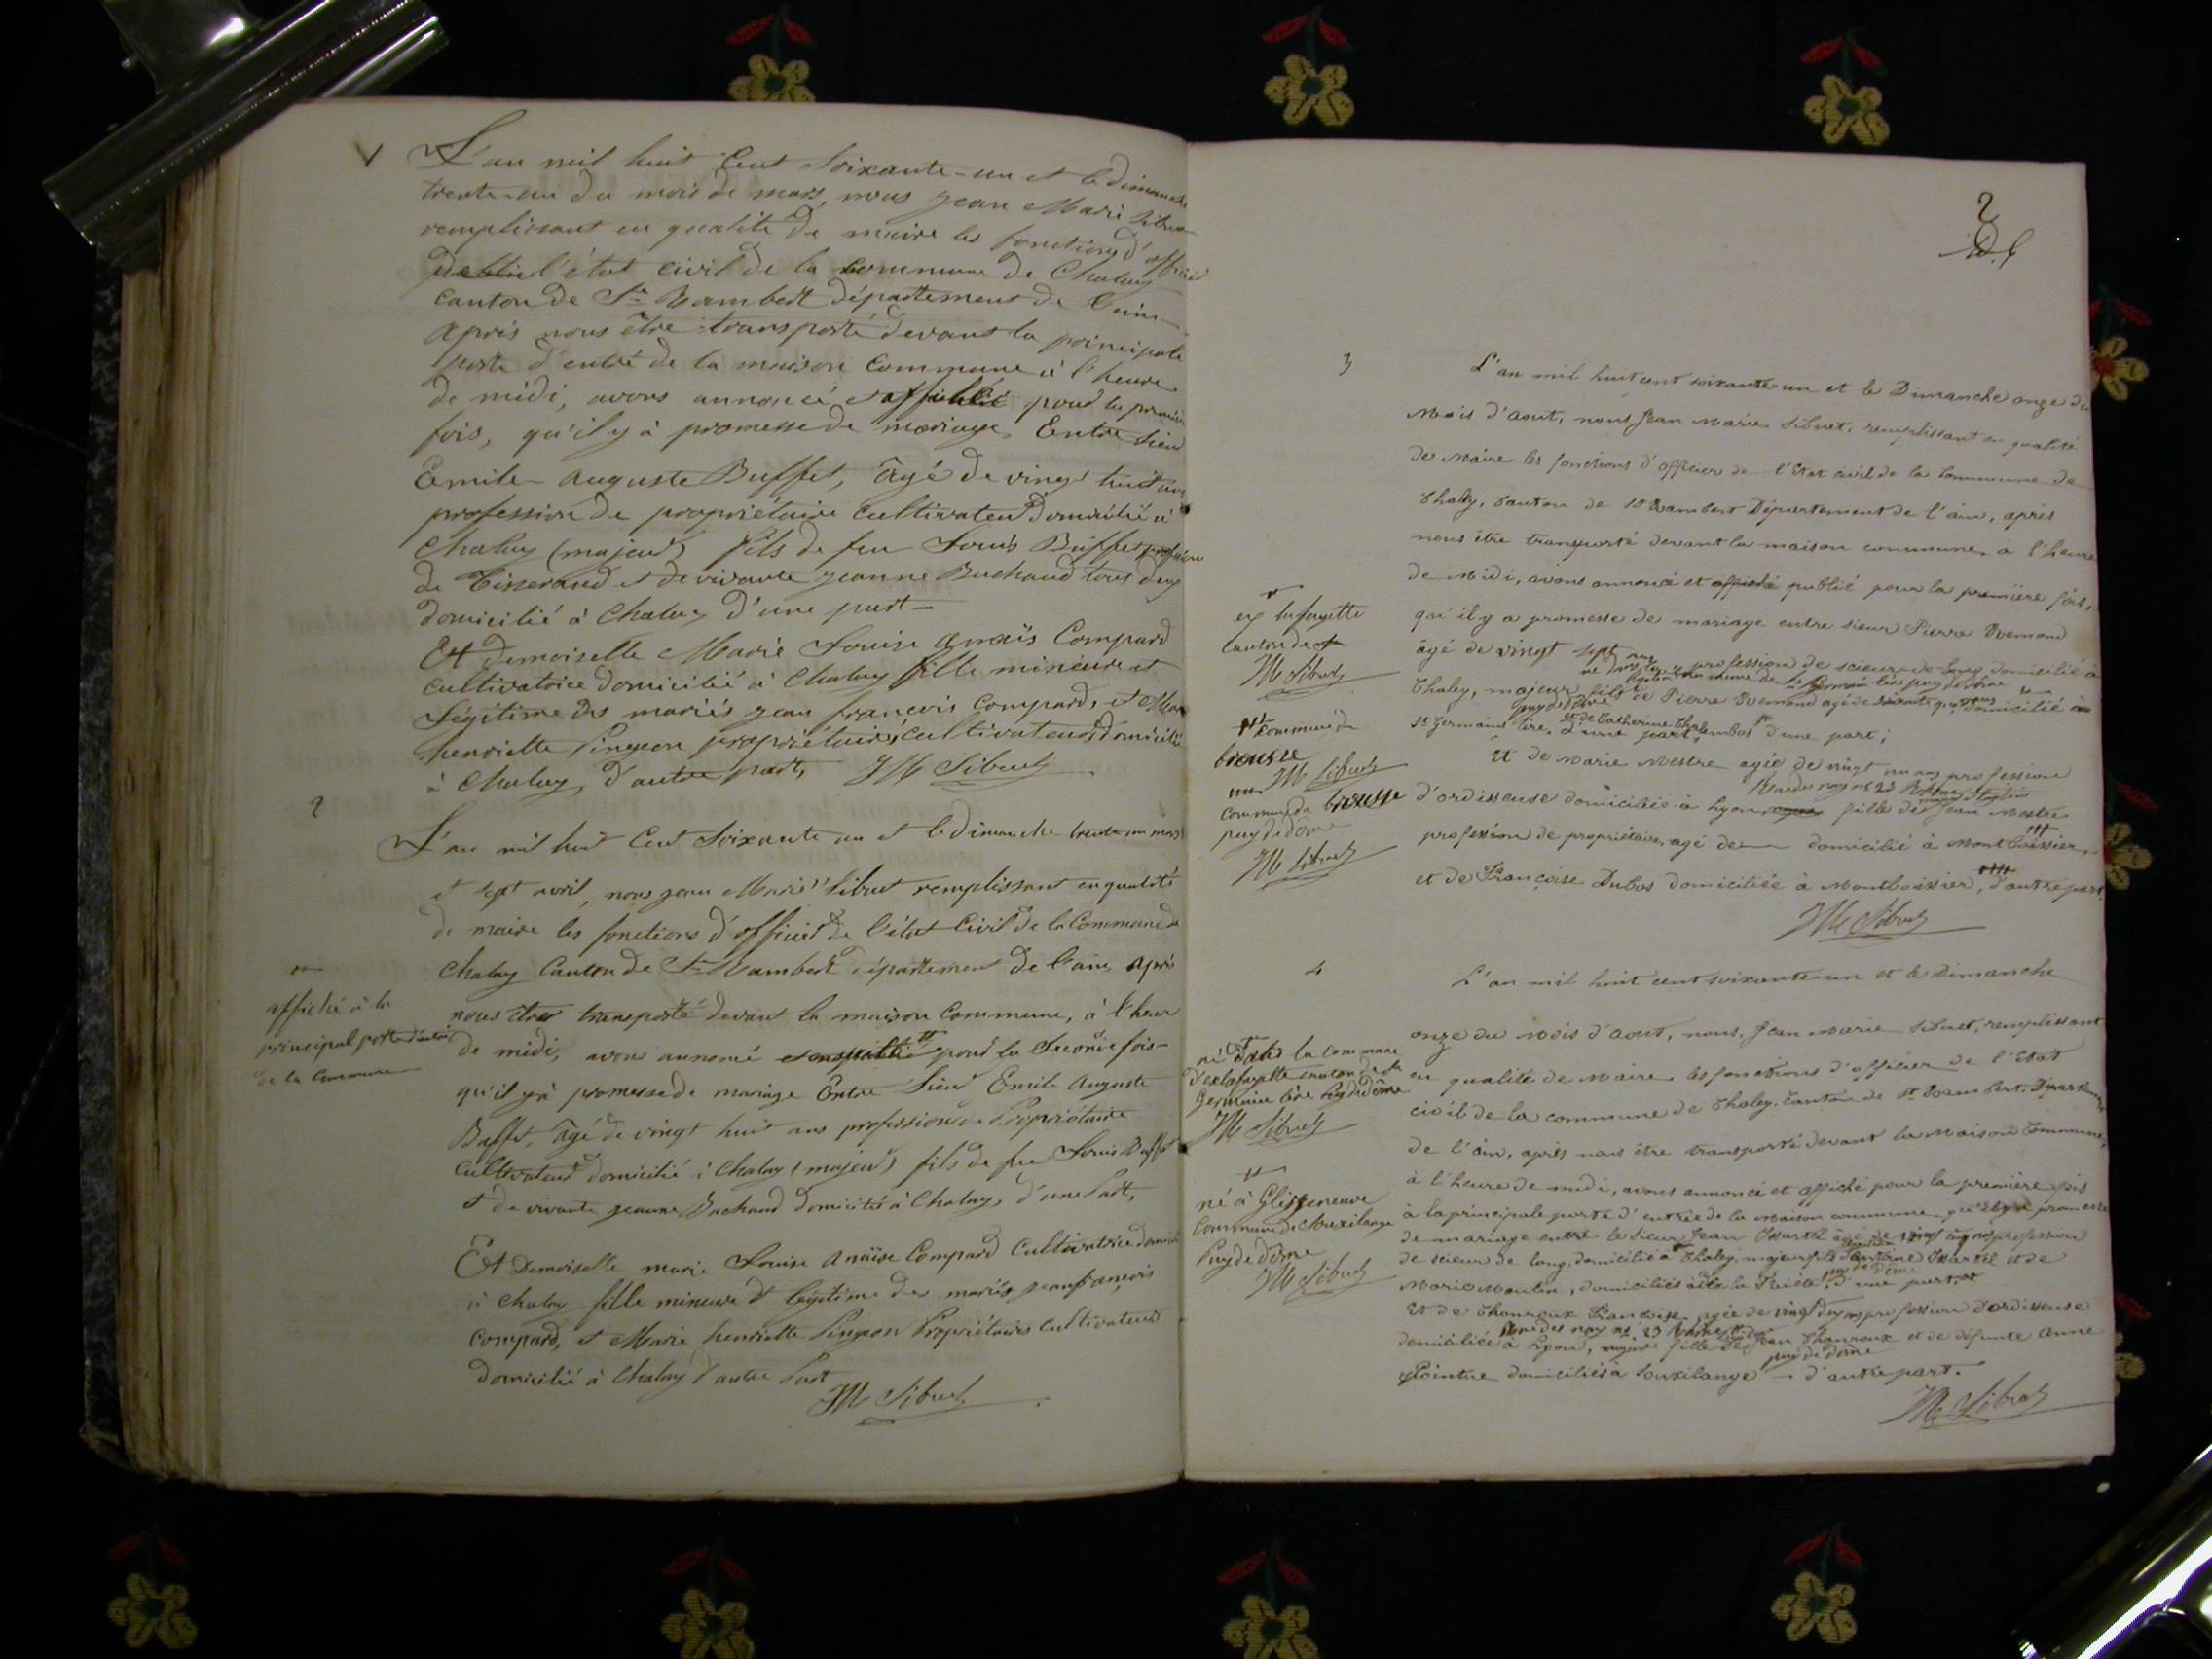 1
L'an mil huit Cent Soixante-un et le dimanche
trente-un du mois de mars, nous Jean Marie Sibuet
remplissant en qualité de maire les fonctions d'officier
de l'état civil de la commune de Chaley
canton de St Rambert département de l'ain
après nous être transporté devant la principale
porte d'entré de la maison Commune à l'heure
de midi, avons annoncé et affiché pour la premiere
fois, qu'il y à promesse de mariage, Entre Sieur
Emile Auguste Buffet, âgé de vingt huit ans
profession de propriétaire cultivateur domicilié à
Chaley (majeur) fils de feu Louis Buffet
de Tisserand et de vivante Jeanne Buchaud tous deux
domicilié à Chaley d'une part
Et Demoiselle Marie Louise Anaïs Compard
cultivatrice domicilié à Chaley fille mineure et
Légitime des mariés Jean françois Compard, et Marie
henriette Pingeon propriétaires cultivateurs domicilié
à Chaley, d'autre part, JM Sibuet
2
L'an mil huit Cent Soixante un et le dimanche trente-un mars
et sept avril, nous Jean Marie Sibuet remplissant en qualité
de maire les fonctions d'officier de l'état Civil de la Commune de
Chaley Canton de St Rambert département de l'ain, après
nous être transporté devant la maison Commune, à l'heure
de midi, avons annoncé pour la Seconde fois
qu'il y à promesse de mariage Entre Sieur Emile Auguste
Buffet, âgé de vingt huit ans profession de Propriétaire
Cultivateur domicilié à Chaley (majeur) fils de feu Louis Buffet
et de vivante Jeanne Buchaud domiciliés à Chaley, d'une Part,
Et Demoiselle marie Louise Anaïse Compard Cultivatrice
à Chaley fille mineure et légitime des mariés Jean françois
Compard, et Marie henriette Pingeon Propriétaires Cultivateurs
domicilié à Chaley d'autre Part
JM Sibuet
affiché à la
principal porte d'entré
de la Commune
2
3
L'an mil huit cent soixante-un et le Dimanche onze du
Mois d'aout, nous Jean Marie Sibuet, remplissant en qualité
de Maire les fonctions d'officier de l'Etat civil de la Commune de
Chaley, Canton de St Rambert Département de l'ain, après
nous être transporté devant la maison commune, à l'heure
de Midi, avons annoncé et affiché publié pour la première fois,
qu'il y a promesse de mariage entre sieur Pierre
âgé de vingt sept ans profession de scieur-de-long domicilié à
Chaley, majeur fils de Pierre agé de domicilié
puy de dôme et de Catherine
St Germain lère, d'une part; d'une part;
Et de Marie Mestre agée de vingt un ans profession
d'ordisseuse domiciliée à Lyon, fille de Jean Mestre
profession de propriétaire, agé de domicilié à Montboissier,
et de Françoise Dubos domiciliée à Montboissier, d'autre part.
JM Sibuet
lafayette
canton de
JM Sibuet
Commune de
brousse
JM Sibuet
Commune de brousse
puy de dôme
JM Sibuet
4
L'an mil huit cent soixante-un et le Dimanche
onze du Mois d'aout, nous, Jean Marie Sibuet, remplissant
en qualité de Maire les fonctions d'officier de l'Etat
civil de la commune de Chaley, Canton de St Rambert, Département
de l'ain, après nous être transporté devant la Maison Commune,
à l'heure de midi, avons annoncé et affiché pour la première fois
à la principale porte d'entrée de la Maison commune, qu'il y a promesse
de mariage entre le Sieur Jean âgé de vingt cinq ans profession
de scieur de long, domicilié à Chaley, majeur fils d'Antoine et de
Marie Moulin, domiciliés d'une part,
Et de Chanroux Françoise agée de vingt deux ans profession d'ordisseuse
domiciliée à Lyon, majeure fille de Jean Chanroux et de défunte Anne
Pointue domiciliés à Sauxilange puy de dôme d'autre part.
JM Sibuet
né dans la Commune
canton de St
Germain lère Puy de dôme
JM Sibuet
né à Glisseneuve
Commune de Sauxilange
Puy de dôme
JM Sibuet